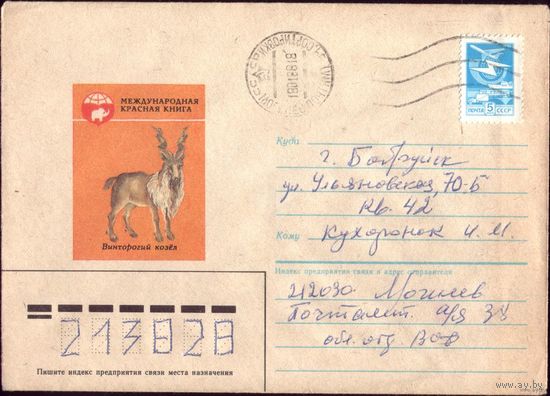 МЕЖДУНАРОДНАЯ
КРАСНАЯ КНИГА
Винторогий козёл
ПОЧТА СССР
5
Куда
г. Бобруйск
ул. Ульяновская, 70-Б
кв. 42
Кому
Кухаронок И. М.
Индекс предприятия связи и адрес отправителя
212030 Могилев
Почтамт. а/я
обл. отд. ВОФ
213828
Пишите индекс предприятия связи места назначения
www.ay.by